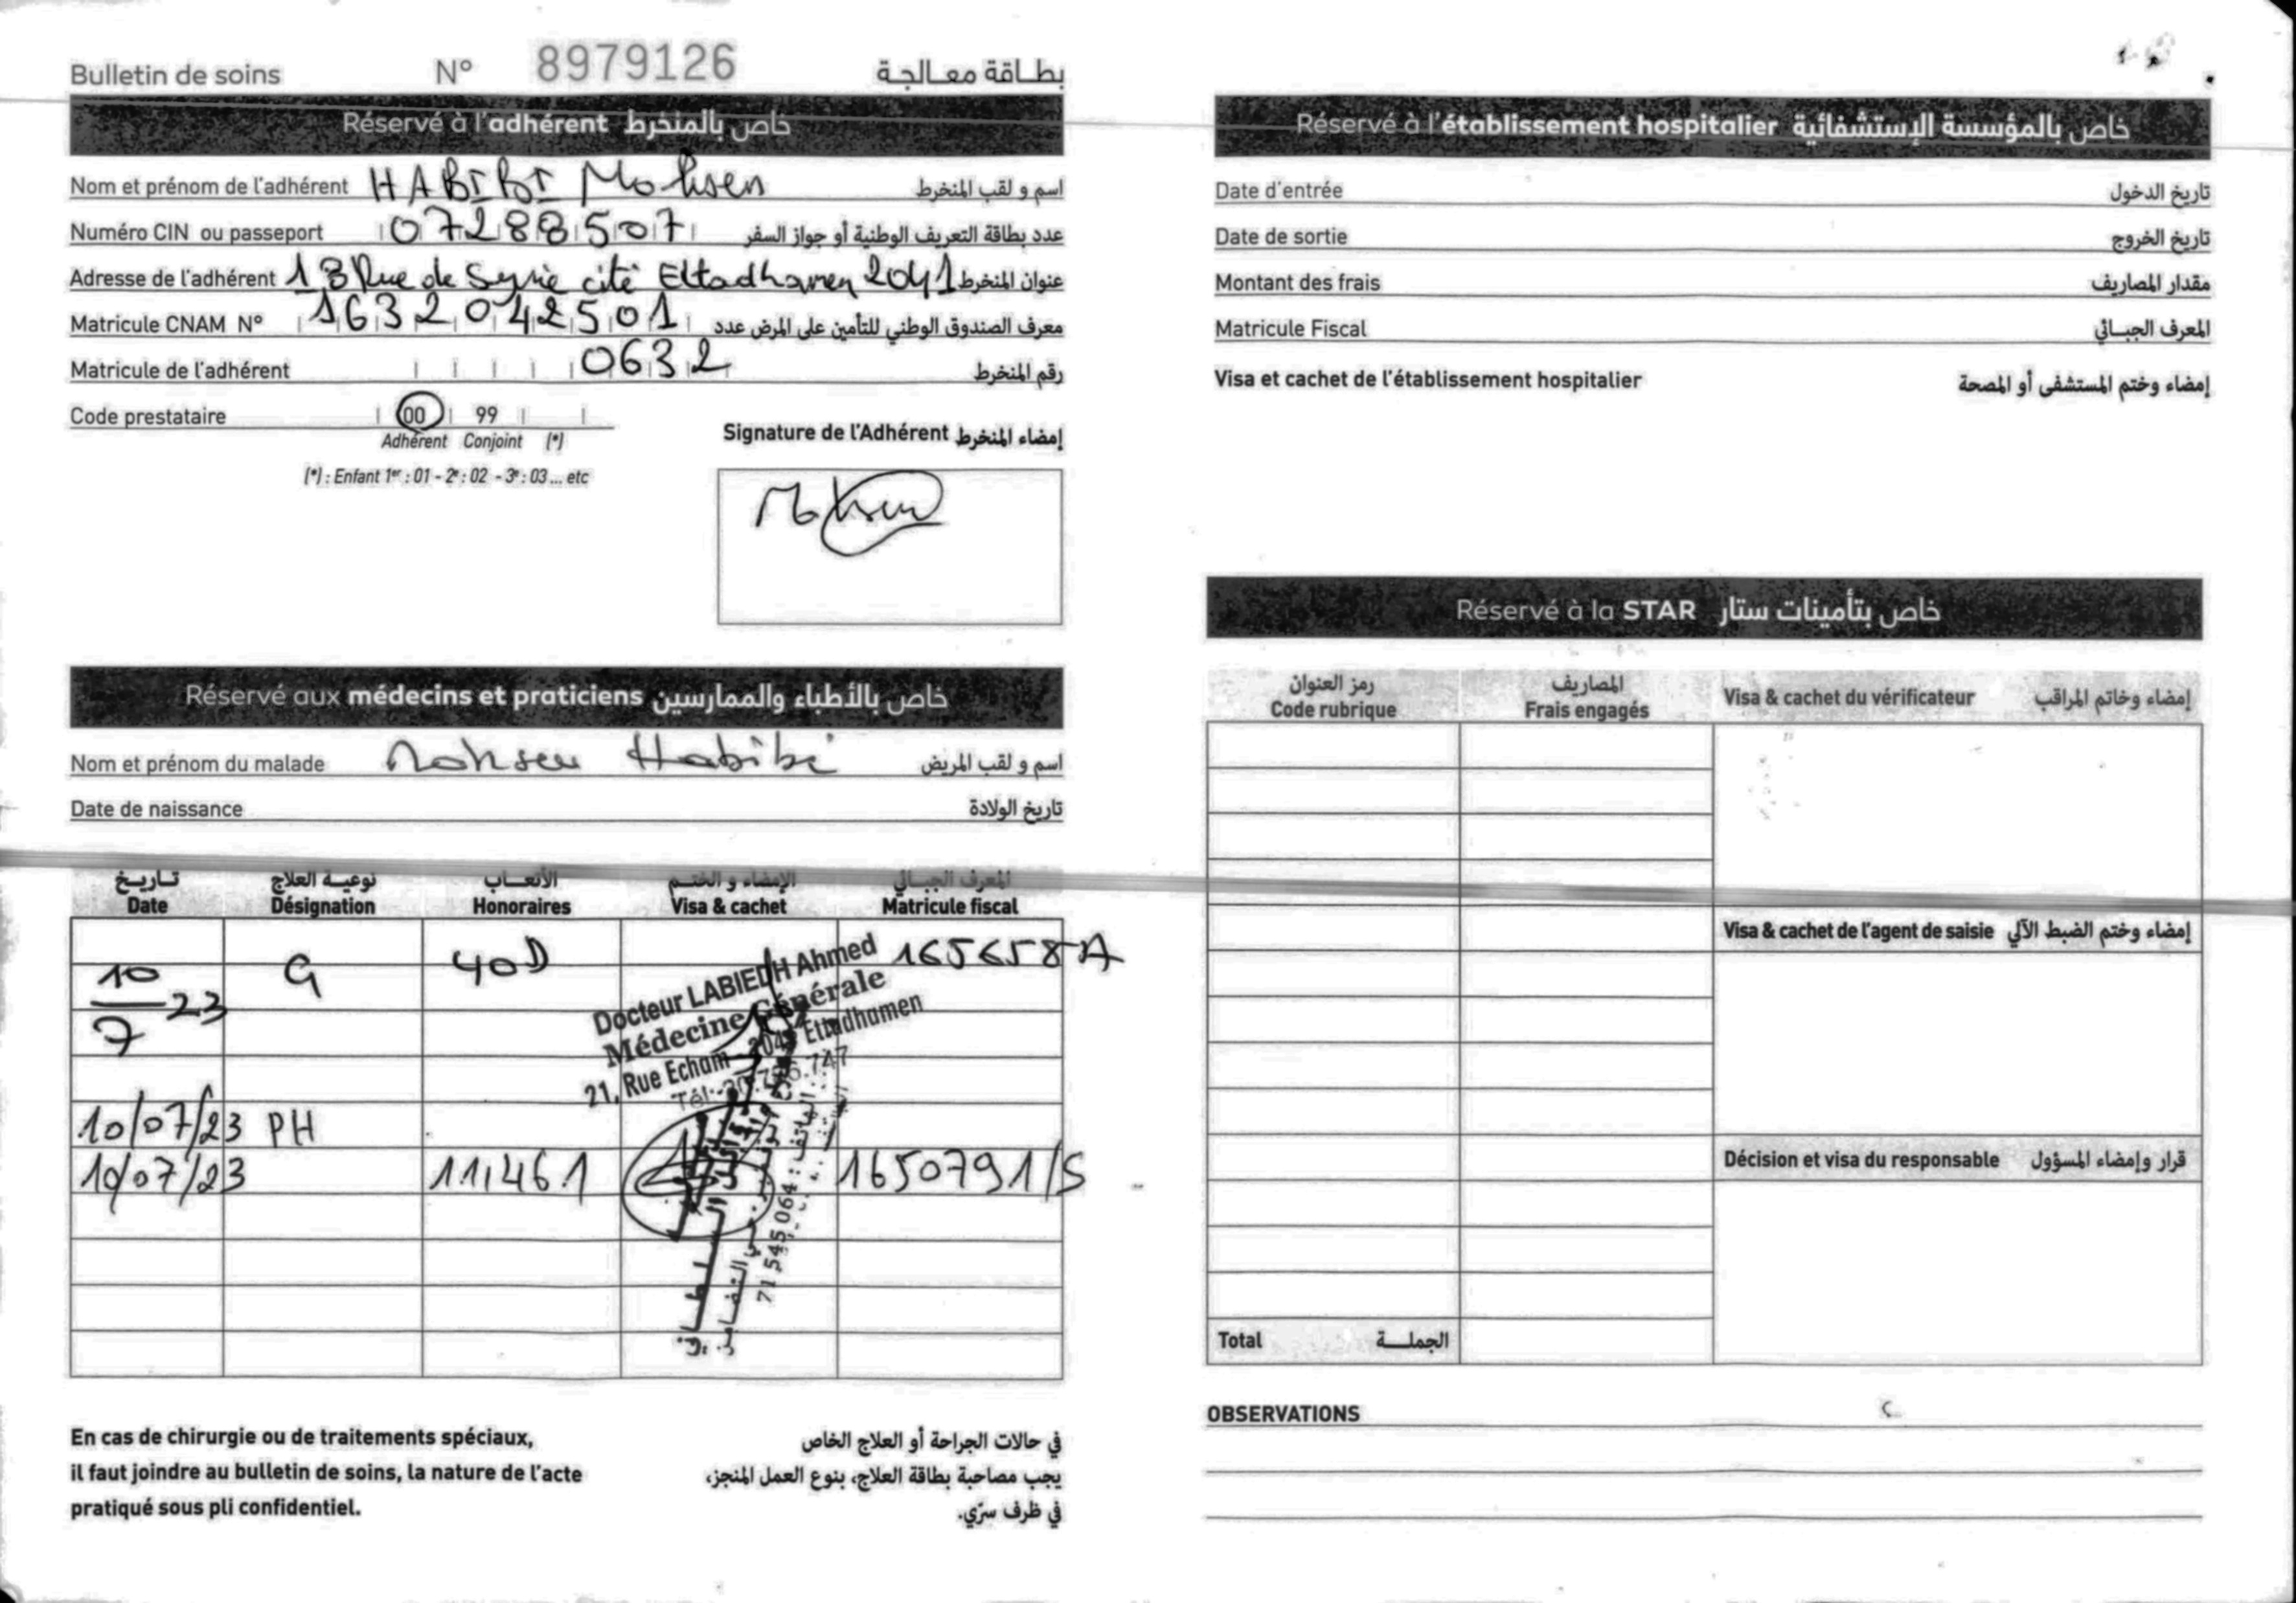 Bulletin de soins N° 8979126 بطاقة معالجة
Réservé à l'adhérent خاص بالمنخرط
Nom et prénom de l'adhérent HABIBI Mohsen اسم و لقب المنخرط
Numéro CIN ou passeport 07288507 عدد بطاقة التعريف الوطنية أو جواز السفر
Adresse de l'adhérent 13 Rue de Syrie cité Ettadhamen 2041 عنوان المنخرط
Matricule CNAM N° 1632042501 معرف الصندوق الوطني للتأمين على المرض عدد
Matricule de l'adhérent 0632 رقم المنخرط
Code prestataire 00 99
Adhérent Conjoint (*)
(*) : Enfant 1er : 01 - 2e : 02 - 3e : 03 ... etc
Signature de l'Adhérent إمضاء المنخرط
Mohsen
Réservé aux médecins et praticiens خاص بالأطباء والممارسين
Nom et prénom du malade Mohsen Habibi اسم و لقب المريض
Date de naissance تاريخ الولادة
تاريخ نوعية العلاج الأتعاب الإمضاء و الختم المعرف الجبائي
Date Désignation Honoraires Visa & cachet Matricule fiscal
10/7 23 G 40D 165658A
Docteur LABIEDH Ahmed
Médecine Générale
21, Rue Echam 2041 Ettadhamen
10/07/23 PH
10/07/23 11,461 1650791/S
71 545 064 : الهاتف
En cas de chirurgie ou de traitements spéciaux,
il faut joindre au bulletin de soins, la nature de l'acte
pratiqué sous pli confidentiel.
في حالات الجراحة أو العلاج الخاص
يجب مصاحبة بطاقة العلاج، بنوع العمل المنجز،
في ظرف سرّي.
Réservé à l'établissement hospitalier خاص بالمؤسسة الإستشفائية
Date d'entrée تاريخ الدخول
Date de sortie تاريخ الخروج
Montant des frais مقدار المصاريف
Matricule Fiscal المعرف الجبائي
Visa et cachet de l'établissement hospitalier إمضاء وختم المستشفى أو المصحة
Réservé à la STAR خاص بتأمينات ستار
رمز العنوان المصاريف
Code rubrique Frais engagés Visa & cachet du vérificateur إمضاء وخاتم المراقب
Visa & cachet de l'agent de saisie إمضاء وختم الضبط الآلي
Décision et visa du responsable قرار وإمضاء المسؤول
Total الجملة
OBSERVATIONS